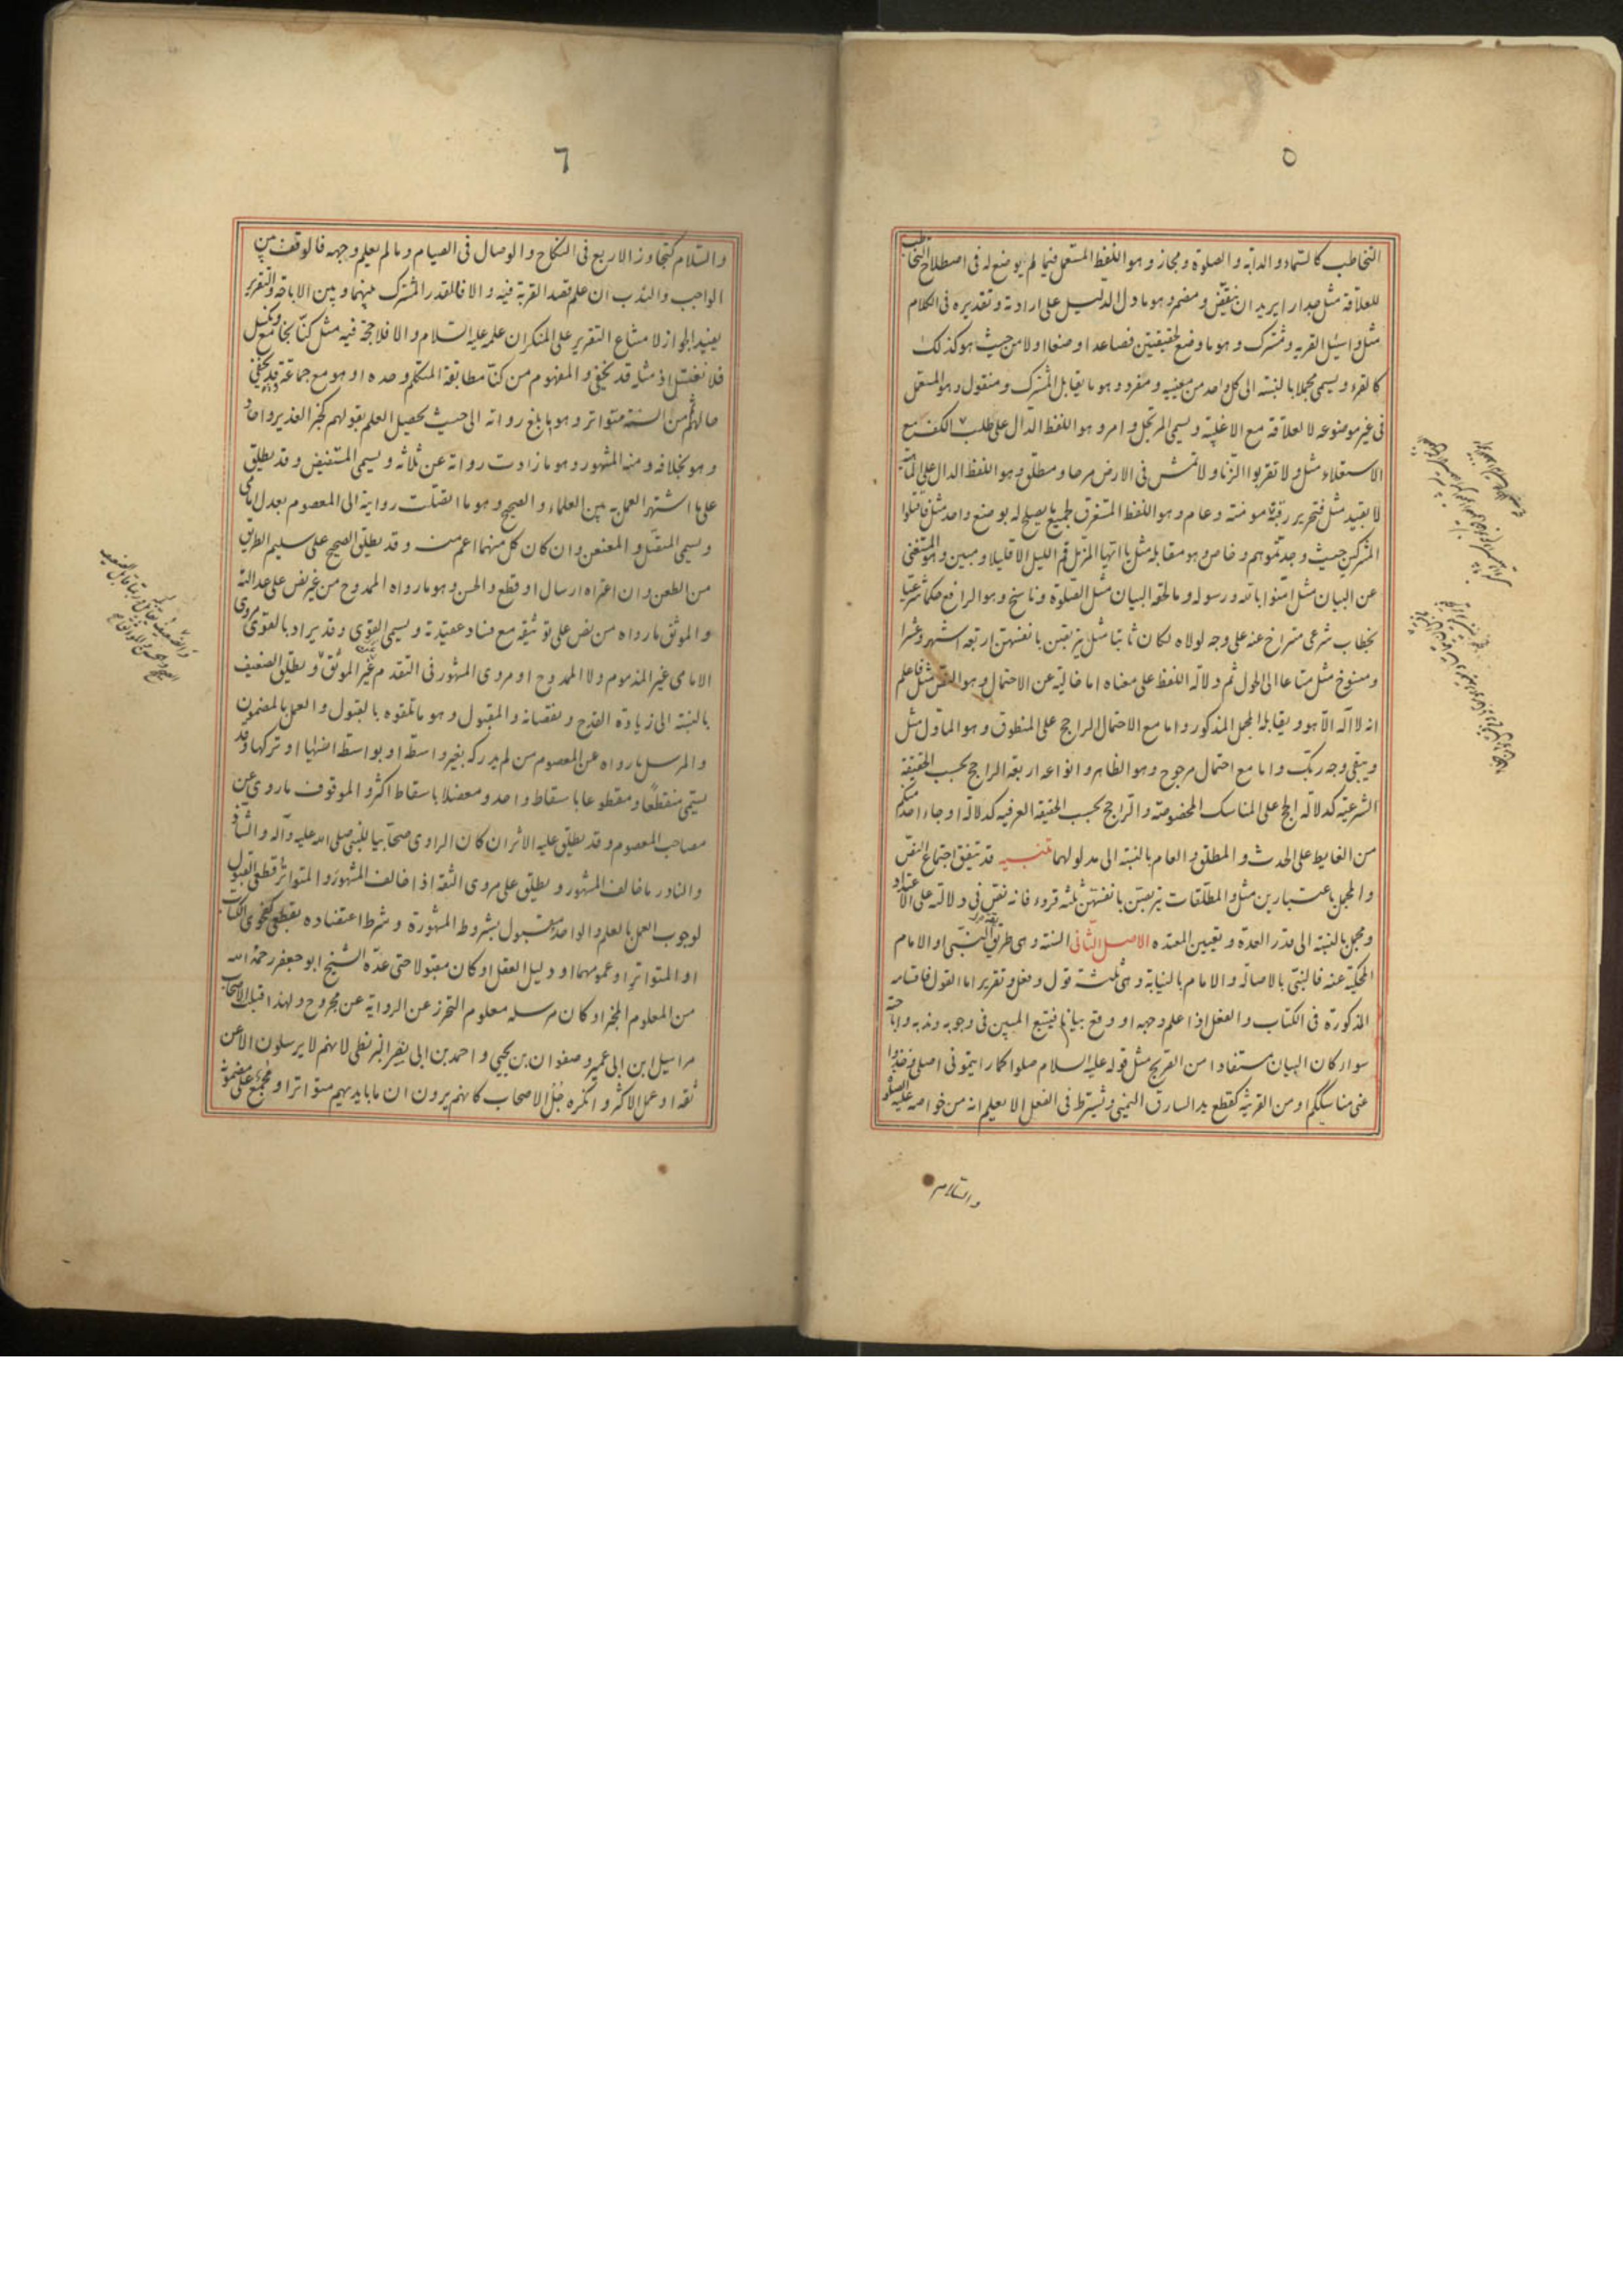 ٥
التخاطب كالسماء والدابة والصلوة ومجاز وهو اللفظ المستعمل فيما لم يوضع له فى اصطلاح التخاطب
للعلاقة مثل جدارا يريد ان ينقض ومضمر وهو ما دل الدليل على ارادته وتقديره فى الكلام
مثل واسئل القرية ومشترك وهو ما وضع لحقيقتين فصاعدا وضعا اولا من حيث هو كذلك
كالقرء ويسمى مجملا بالنسبة الى كل واحد من معنييه ومنفرد وهو ما يقابل المشترك ومنقول وهو المستعمل
فى غير موضوعه لا لعلاقة مع الاغلبية ويسمى المرتجل وامر وهو اللفظ الدال على طلب الكف مع
الاستعلاء مثل ولا تقربوا الزنا ولا تمش فى الارض مرحا ومطلق وهو اللفظ الدال على الماهية
لا بقيد مثل فتحرير رقبة مومنة وعام وهو اللفظ المستغرق لجميع ما يصلح له بوضع واحد مثل فاقتلوا
المشركين حيث وجدتموهم وخاص وهو مقابله مثل يا ايها المزمل قم الليل الا قليلا ومبين وهو المستغنى
عن البيان مثل امنوا بالله ورسوله وما لحقه البيان مثل الصلوة وناسخ وهو الرافع حكما شرعيا
بخطاب شرعى متراخ عنه على وجه لولاه لكان ثابتا مثل يتربصن بانفسهن اربعة اشهر وعشرا
ومنسوخ مثل متاعا الى الحول ثم دلالة اللفظ على معناه اما خالية عن الاحتمال وهو النص مثل فاعلم
انه لا اله الا هو ويقابله المجمل المذكور واما مع الاحتمال الراجح على المنطوق وهو الماول مثل
ويبقى وجه ربك واما مع احتمال مرجوح وهو الظاهر وانواعه اربعة الراجح بحسب الحقيقة
الشرعية كدلالة الحج على المناسك المخصوصة والراجح بحسب الحقيقة العرفية كدلالة او جاء احد منكم
من الغايط على الحدث والمطلق والعام بالنسبة الى مدلولهما تنبيه قد يتفق اجتماع النص
والمجمل باعتبارين مثل والمطلقات يتربصن بانفسهن ثلثة قروء فانه نص فى دلالته على الاعتداد
ومجمل بالنسبة الى قدر العدة وتعيين المعتدة الاصل الثانى السنة وهى طريقة النبى او الامام
المحكية عنه فالنبى بالاصالة والامام بالنيابة وهى ثلثة قول وفعل وتقرير اما القول فاقسامه
المذكورة فى الكتاب والفعل اذا علم وجهه او وقع بيانا فيتبع المبين فى وجوبه وندبه واباحته
سواء كان البيان مستفادا من الصريح مثل قوله عليه السلام صلوا كما رايتمونى اصلى وخذوا
عنى مناسككم او من القرينة كقطع يد السارق اليمنى ويشترط فى الفعل الا يعلم انه من خواصه عليه الصلوة
والسلام
٦
والسلام كتجاوز الاربع فى النكاح والوصال فى الصيام وما لم يعلم وجهه فالوقف بين
الواجب والندب ان علم قصد القربة فيه والا فالقدر المشترك بينهما وبين الاباحة والتقرير
يفيد الجواز لامتناع التقرير على المنكر ان علمه عليه السلام والا فلا حجة فيه مثل كنا نجامع ونكسل
فلا نغتسل اذ مثله قد يخفى والمفهوم من كنا مطابقة المتكلم وحده او هو مع جماعة قد يخفى
حالهم ثم من السنة متواتر وهو ما بلغ رواته الى حيث يحصل العلم بقولهم كخبر الغدير واحاد
وهو بخلافه ومنه المشهور وهو ما زادت رواته عن ثلاثة ويسمى المستفيض وقد يطلق
على ما اشتهر العمل به بين العلماء والصحيح وهو ما اتصلت روايته الى المعصوم بعدل امامى
ويسمى المتصل والمعنعن وان كان كل منهما اعم منه وقد يطلق الصحيح على سليم الطريق
من الطعن وان اعتراه ارسال او قطع والحسن وهو ما رواه الممدوح من غير نص على عدالته
والموثق ما رواه من نص على توثيقه مع فساد عقيدته ويسمى القوى وقد يراد بالقوى مروى
الامامى غير المذموم ولا الممدوح او مروى المشهور فى التقدم غير الموثق ويطلق الضعيف
بالنسبة الى زيادة القدح ونقصانه والمقبول وهو ما تلقوه بالقبول والعمل بالمضمون
والمرسل ما رواه عن المعصوم من لم يدركه بغير واسطة او بواسطة انسيها او تركها وقد
يسمى منقطعا ومقطوعا باسقاط واحد ومعضلا باسقاط اكثر والموقوف ما روى عن
مصاحب المعصوم وقد يطلق عليه الاثر ان كان الراوى صحابيا للنبى صلى الله عليه وآله والشاذ
والنادر ما خالف المشهور ويطلق على مروى الثقة اذا خالف المشهور والمتواتر قطعى القبول
لوجوب العمل بالعلم والواحد مقبول بشروط المشهورة وشرط اعتضاده بقطعى كفحوى الكتاب
او المتواتر او عمومهما او دليل العقل او كان مقبولا حتى عده الشيخ ابو جعفر رحمه الله
من المعلوم المخبر او كان مرسله معلوم التحرز عن الرواية عن مجروح ولهذا قبلت الاصحاب
مراسيل ابن ابى عمير وصفوان بن يحيى واحمد بن ابى نصر البزنطى لانهم لا يرسلون الا عن
ثقة او عمل الاكثر وانكره جل الاصحاب كانهم يرون ان ما بايديهم متواترا او مجمع على مضمونه